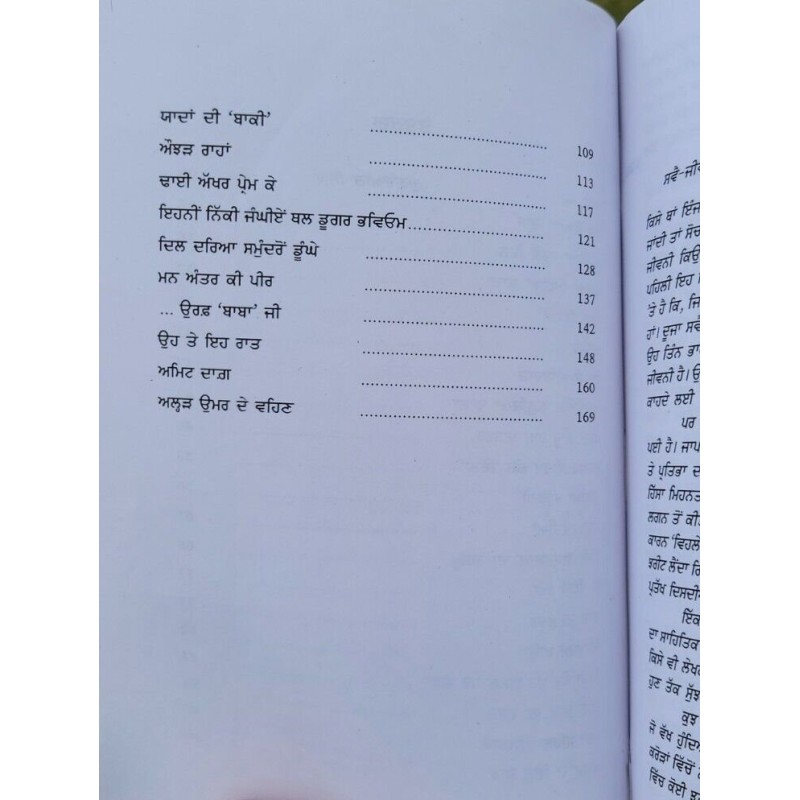 ਯਾਦਾਂ ਦੀ 'ਬਾਕੀ' ........ 109
ਔਝੜ ਰਾਹਾਂ ........ 113
ਢਾਈ ਅੱਖਰ ਪ੍ਰੇਮ ਕੇ ........ 117
ਇਹਨੀਂ ਨਿੱਕੀ ਜੰਘੀਏਂ ਥਲ ਡੂਗਰ ਭਵਿਓਮ ........ 121
ਦਿਲ ਦਰਿਆ ਸਮੁੰਦਰੋਂ ਡੂੰਘੇ ........ 128
ਮਨ ਅੰਤਰ ਕੀ ਪੀਰ ........ 137
... ਉਰਫ਼ 'ਬਾਬਾ' ਜੀ ........ 142
ਉਹ ਤੇ ਇਹ ਰਾਤ ........ 148
ਅਮਿਟ ਦਾਗ਼ ........ 160
ਅਲ੍ਹੜ ਉਮਰ ਦੇ ਵਹਿਣ ........ 169
ਕਿਸੇ ਥਾਂ ਇੰਜ
ਜਾਂਦੀ ਤਾਂ ਸੋਚ
ਜੀਵਨੀ ਕਿਉਂ
ਪਹਿਲੀ ਇਹ
'ਤੇ ਹੈ ਕਿ, ਜਿ
ਹਾਂ। ਦੂਜਾ ਸਵੈ
ਉਹ ਤਿੰਨ ਭਾ
ਜੀਵਨੀ ਹੈ। ਉ
ਕਾਹਦੇ ਲਈ
ਪਰ
ਪਈ ਹੈ। ਜਾਪ
ਤੇ ਪ੍ਰਤਿਭਾ ਦ
ਹਿੱਸਾ ਮਿਹਨਤ
ਲਗਨ ਤੋਂ ਕੀਤ
ਕਾਰਨ 'ਵਿਹਲੇ
ਝਗੇਟ ਲੈਂਦਾ ਰਿ
ਪ੍ਰਤੱਖ ਦਿਸਦੀ
ਇੱਕ
ਦਾ ਸਾਹਿਤਿਕ
ਕਿਸੇ ਵੀ ਲੇਖਕ
ਹੁਣ ਤੱਕ ਸੁੱਝ
ਕੁਝ
ਜੋ ਵੱਖ ਹੁੰਦਿਆ
ਕਰੋੜਾਂ ਵਿੱਚੋਂ
ਵਿੱਚ ਕੋਈ